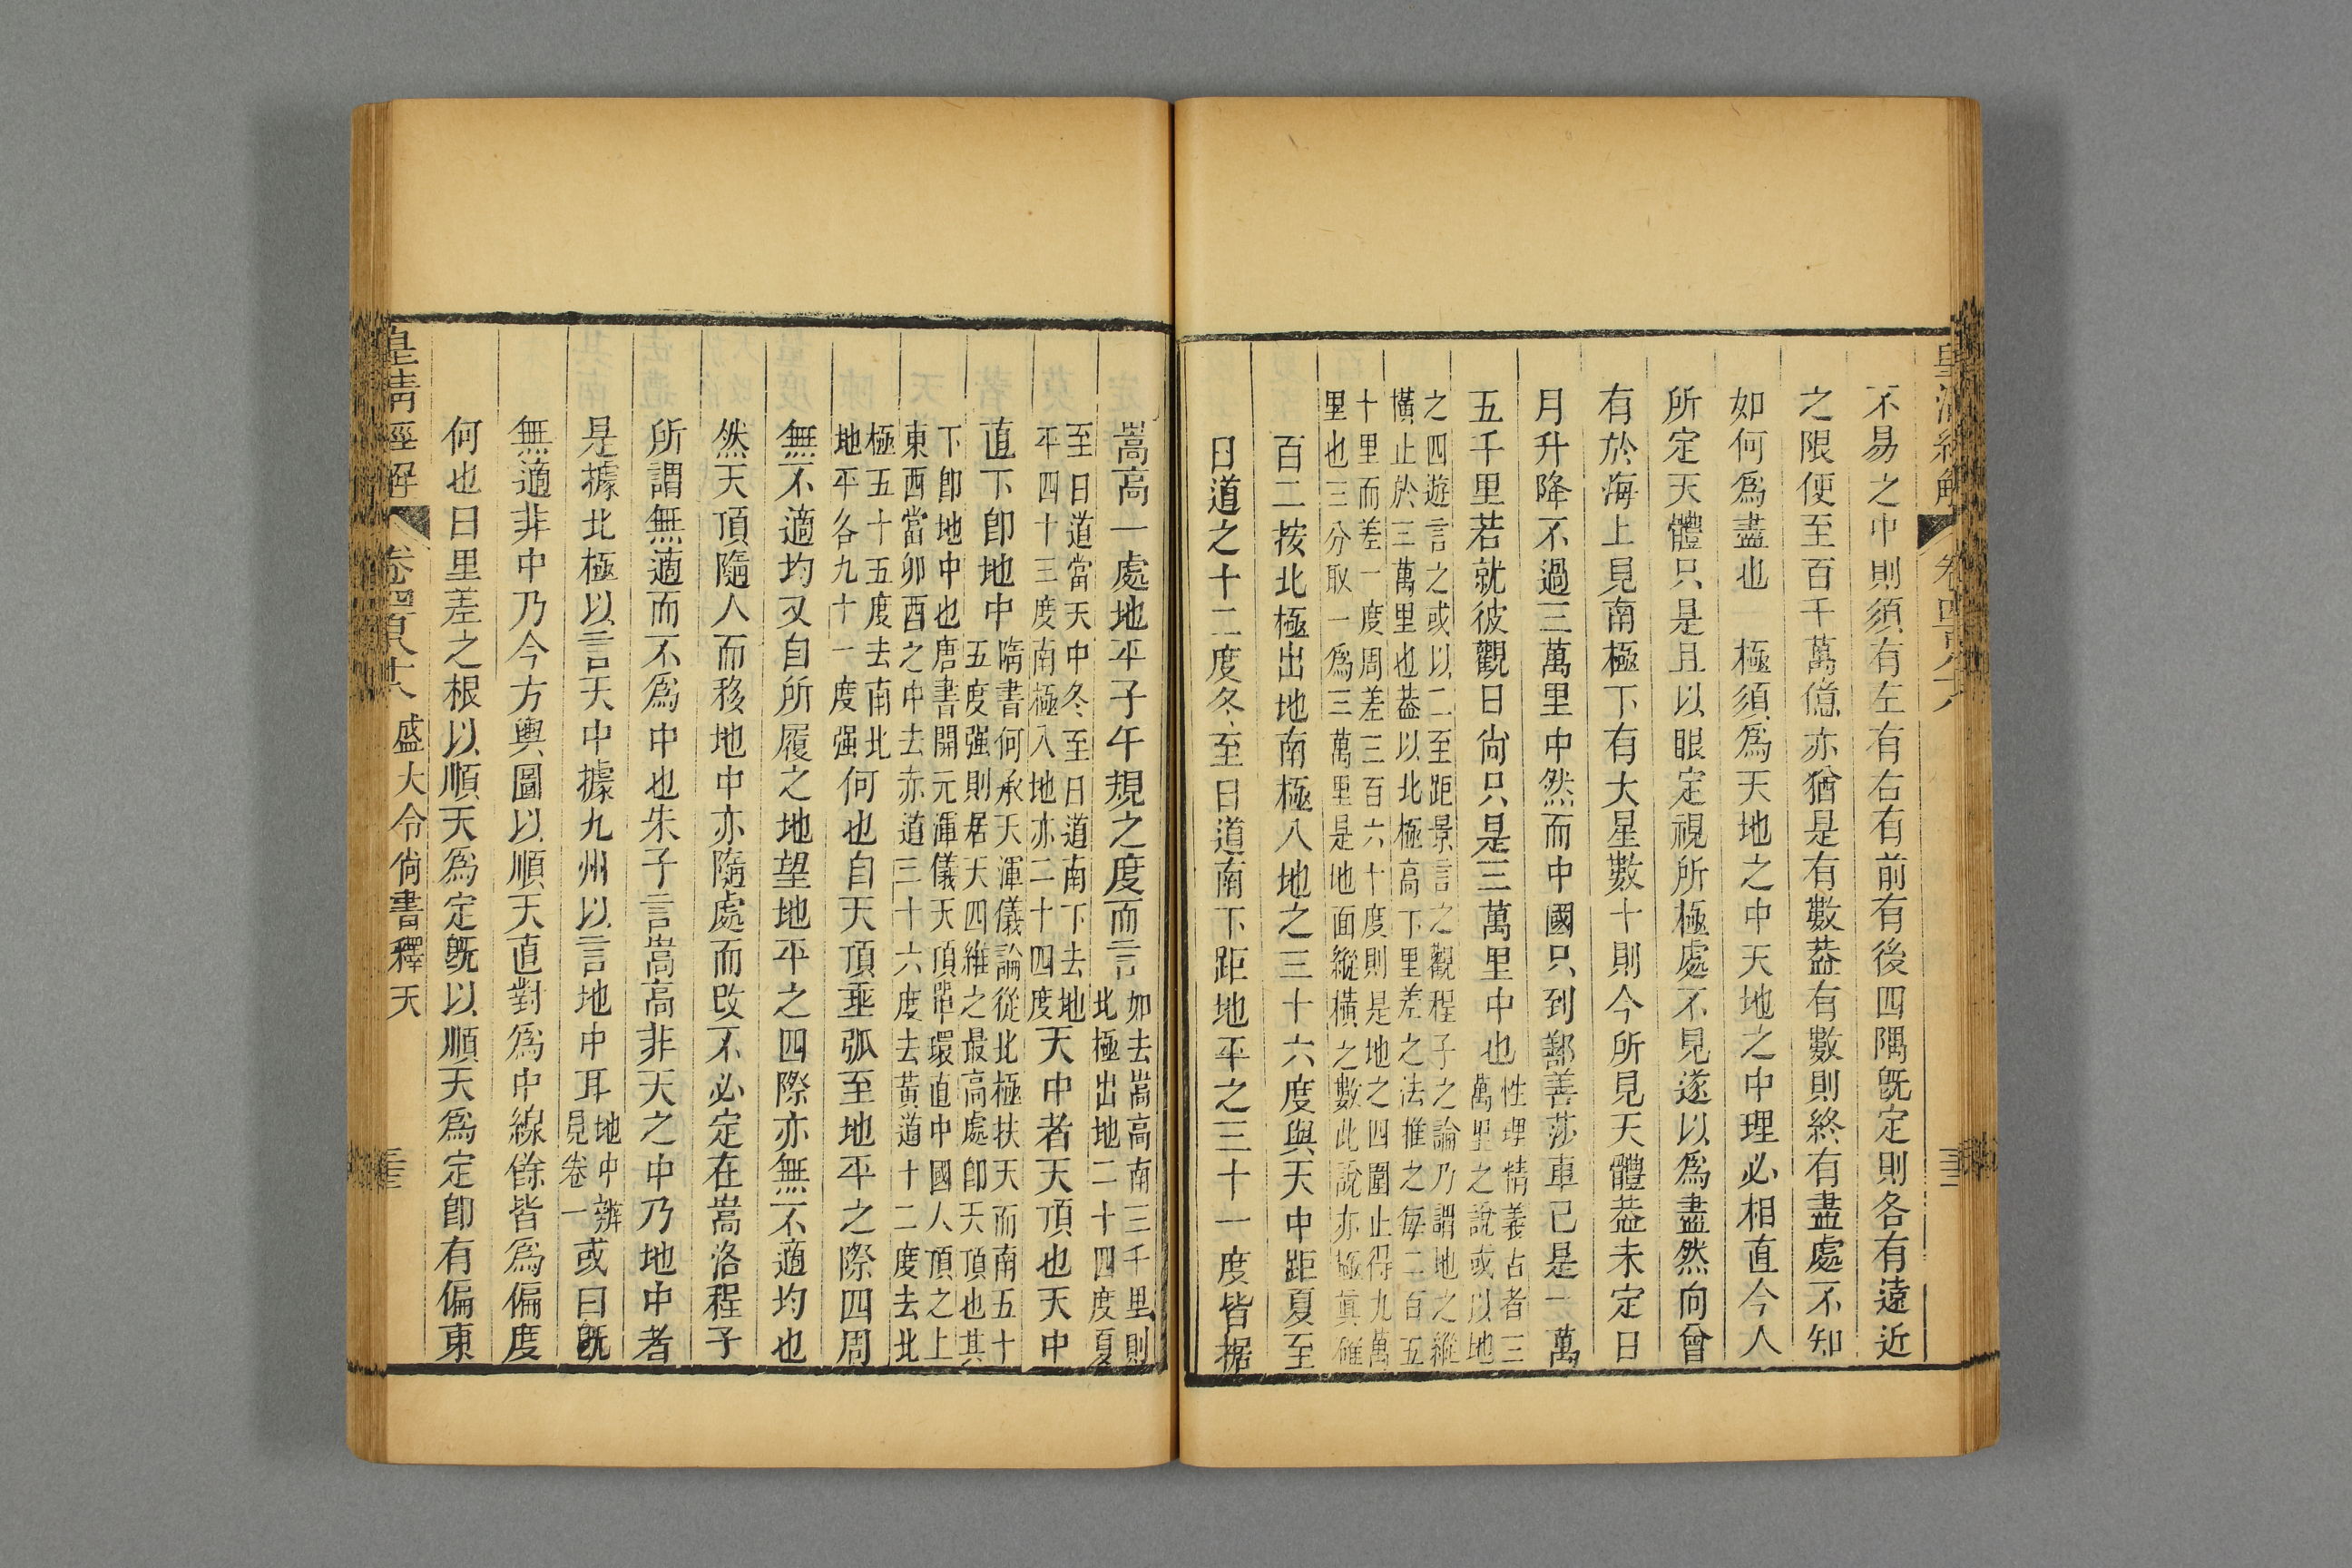 不易之中則須有左有右有前有後四隅既定則各有遠近
之限便至百千萬億亦猶是有數葢有數則終有盡處不知
如何爲盡也　極須爲天地之中天地之中理必相直今人
所定天體只是且以眼定視所極處不見遂以爲盡然向曾
有於海上見南極下有大星數十則今所見天體葢未定日
月升降不過三萬里中然而中國只到鄯善莎車已是一萬
五千里若就彼觀日尙只是三萬里中也
性理情義古者三
萬里之說或以地
之四遊言之或以二至距景言之觀程子之論乃謂地之縱
橫止於三萬里也葢以北極高下里差之法推之每二百五
十里而差一度周差三百六十度則是地之四圍止得九萬
里也三分取一爲三萬里是地面縱橫之數此說亦極眞確
百二按北極出地南極入地之三十六度與天中距夏至
日道之十二度冬至日道南下距地平之三十一度皆據
嵩高一處地平子午規之度而言
如去嵩高南三千里則
北極出地二十四度夏
至日道當天中冬至日道南下去地
平四十三度南極入地亦二十四度
天中者天頂也天中
直下卽地中
隋書何承天渾儀論從北極扶天而南五十
五度強則居天四維之最高處卽天頂也其
下卽地中也唐書開元渾儀天頂單環直中國人頂之上
東西當卯酉之中去赤道三十六度去黃道十二度去北
極五十五度去南北
地平各九十一度强
何也自天頂垂弧至地平之際四周
無不適均又自所履之地望地平之四際亦無不適均也
然天頂隨人而移地中亦隨處而改不必定在嵩洛程子
所謂無適而不爲中也朱子言嵩高非天之中乃地中者
是據北極以言天中據九州以言地中耳
地中辨
見卷一
或曰旣
無適非中乃今方輿圖以順天直對爲中線餘皆爲偏度
何也曰里差之根以順天爲定旣以順天爲定卽有偏東
皇清經解
盛大令尙書釋天